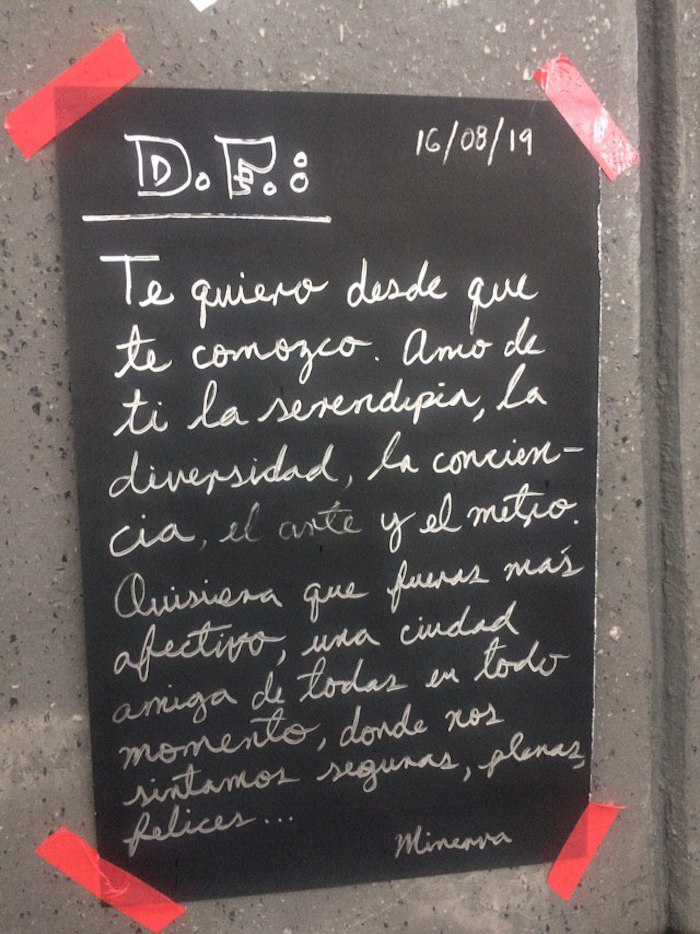 D.F.:
16/08/19
Te quiero desde que
te comozco. Amo de
ti la serendipia, la
diversidad, la concien-
cia, el arte y el metro.
Quisiera que fueras más
afectivo, una ciudad
amiga de todas en todo
momento, donde nos
sintamos seguras, plenas,
felices...
Minerva